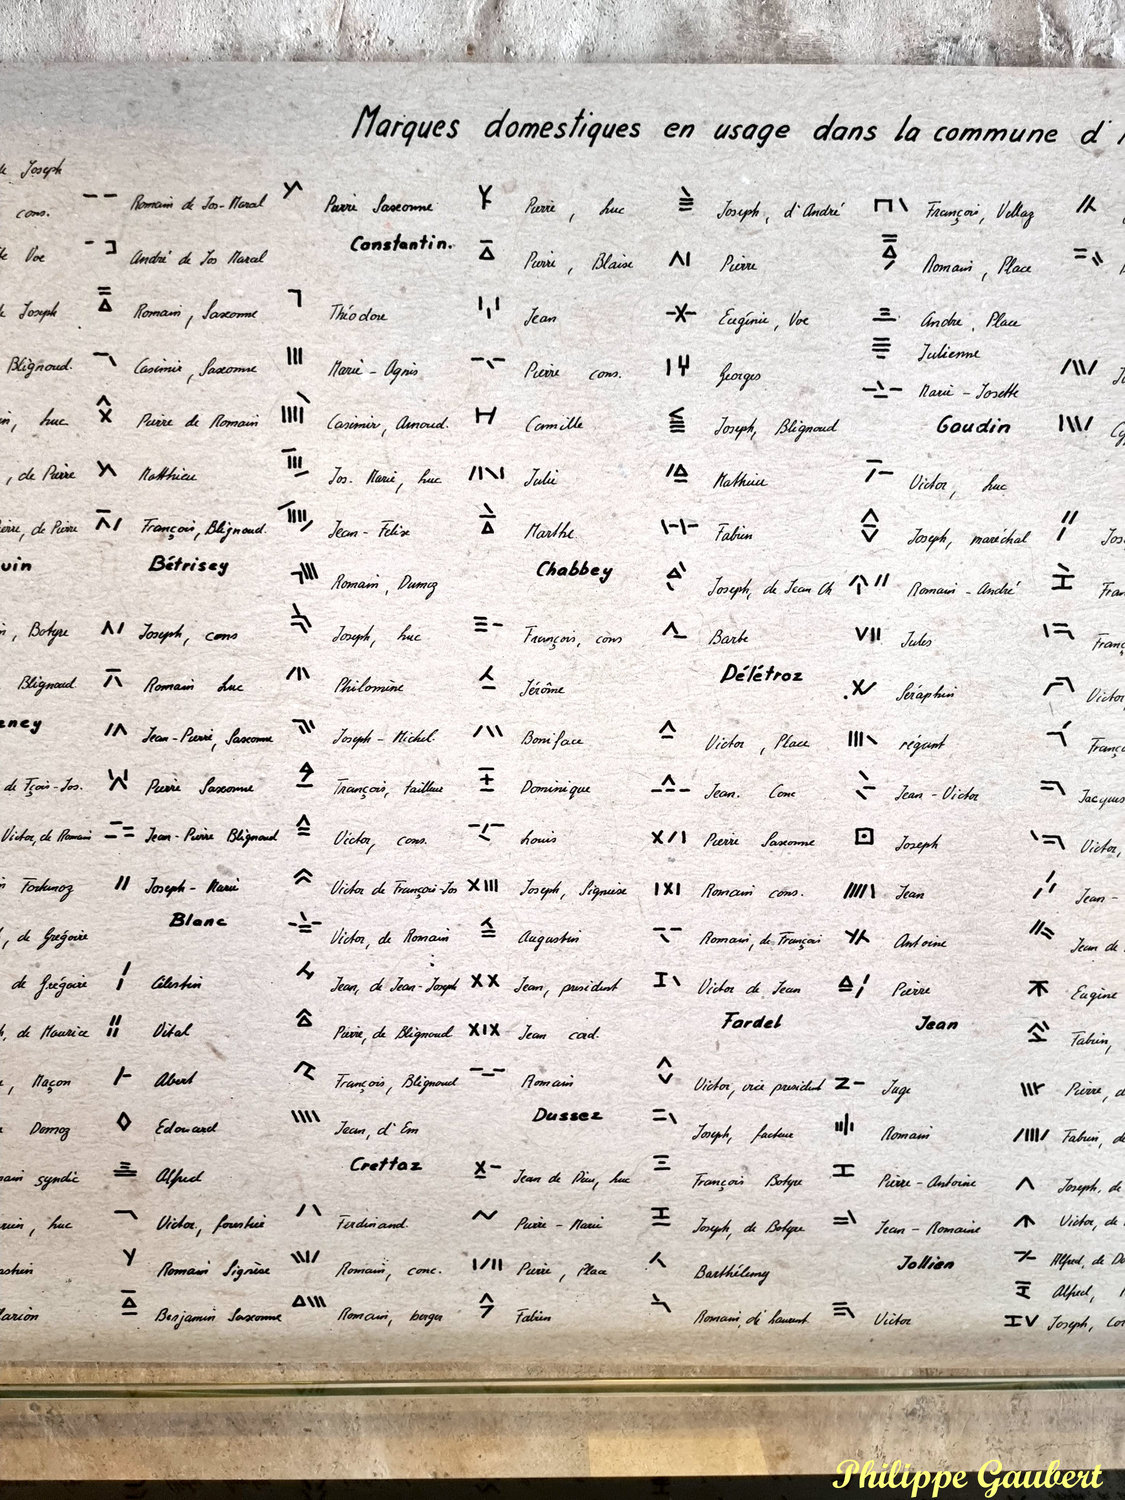 Marques domestiques en usage dans la commune d'
Joseph
cons.
Voe
Joseph
Blignoud.
, luc
, de Pierre
, de Pierre
, Botyre
Blignoud
de Fçois-Jos.
Victor, de Romain
Fortunoz
, de Grégoire
de Grégoire
, de Maurice
, Maçon
Domoz
syndic
, luc
Romain de Jos-Maral
André de Jos Maral
Romain, Saxonne
Casimir, Saxonne
Pierre de Romain
Matthieu
François, Blignoud.
Bétrisey
Joseph, cons
Romain luc
Jean-Pierre, Saxonne
Pierre Saxonne
Jean-Pierre Blignoud
Joseph-Marie
Blanc
Célestin
Vital
Abert
Edouard
Alfred
Victor, forestier
Romain Signièse
Benjamin Saxonne
Pierre Saxonne
Constantin.
Théodore
Marie-Agnis
Casimir, Arnoud.
Jos. Marie, luc
Jean-Felix
Romain, Dumoz
Joseph, luc
Philomène
Joseph-Michel.
François, tailleur
Victor, cons.
Victor de François-Jos
Victor, de Romain
Jean, de Jean-Joseph
Pierre, de Blignoud
François, Blignoud
Jean, d'Em
Crettaz
Ferdinand.
Romain, conc.
Romain, berger
Pierre, Luc
Pierre, Blaise
Jean
Pierre cons.
Camille
Julie
Marthe.
Chabbey
François, cons
Jérôme
Boniface
Dominique
Louis
Joseph, Signièse
Augustin
Jean, president
Jean cord.
Romain
Dussez
Jean de Dieu, luc
Pierre-Marie
Pierre, Place
Fabien
Joseph, d'André
Pierre
Eugénie, Voe
Georges
Joseph, Blignoud
Mathieu
Fabien
Joseph, de Jean Ch
Barbe
Délétroz
Victor, Place
Jean. Conc
Pierre Saxonne
Romain cons.
Romain, de François
Victor de Jean
Fardel
Victor, vice president
Joseph, facteur
François Botyre
Joseph, de Botyre
Barthélemy
Romain, d'Laurent
François, Vellaz
Romain, Place
Andre, Place
Julienne
Marie-Josette
Gaudin
Victor, luc
Joseph, maréchal
Romain-André
Jules
Séraphin
régent
Jean-Victor
Joseph
Jean
Antoine
Pierre
Jean
Juge
Romain
Pierre-Antoine
Jean-Romaine
Jollien
Victor
Jacques
Victor,
Jean-
Jean de
Eugène
Fabien,
Pierre, d
Fabien, de
Joseph, de
Victor, de
Alfred, de
Alfred,
Joseph,
Philippe Gaubert